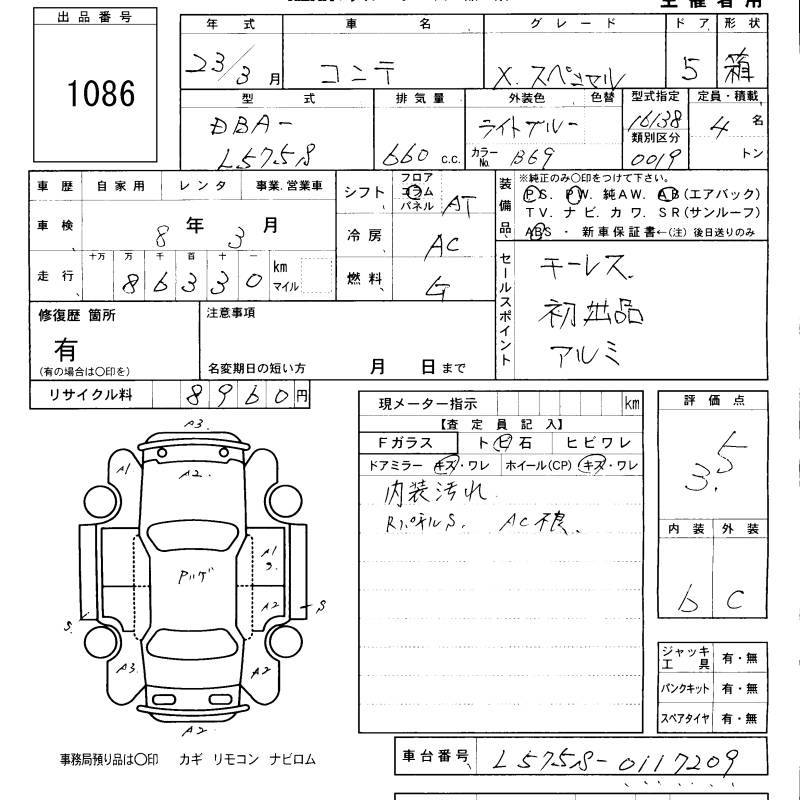 出品番号
1086
年式 車名 グレード ドア 形状
23/3月 コンテ X.スペシャル 5 箱
型式 排気量 外装色 色替 型式指定 定員・積載
DBA-
L575S
660 c.c.
ライトブルー
カラーNo. B69
16138
類別区分
0019
4名
トン
車歴 自家用 レンタ 事業.営業車
車検 8年3月
走行 十万 万 千 百 十 一
86330 km マイル
シフト フロア コラム パネル AT
冷房 AC
燃料 G
装備品
※純正のみ〇印をつけて下さい。
PS. PW. 純AW. AB(エアバック)
TV. ナビ. カワ. SR(サンルーフ)
ABS ・ 新車保証書←(注) 後日送りのみ
セールスポイント
キーレス
初出品
アルミ
修復歴 箇所
有
(有の場合は〇印を)
注意事項
名変期日の短い方 月 日まで
リサイクル料 8960円
現メーター指示 km
【査定員記入】
Fガラス ト 石 ヒビワレ
ドアミラー キズ・ワレ ホイール(CP) キズ・ワレ
内装汚れ
RパネルS. AC不良、
評価点
3.5
内装 外装
b C
A3.
A1
A2.
A1
S.
A2
S
S.
A3.
A2
A2
ジャッキ工具 有・無
パンクキット 有・無
スペアタイヤ 有・無
事務局預り品は〇印 カギ リモコン ナビロム
車台番号 L575S-0117209